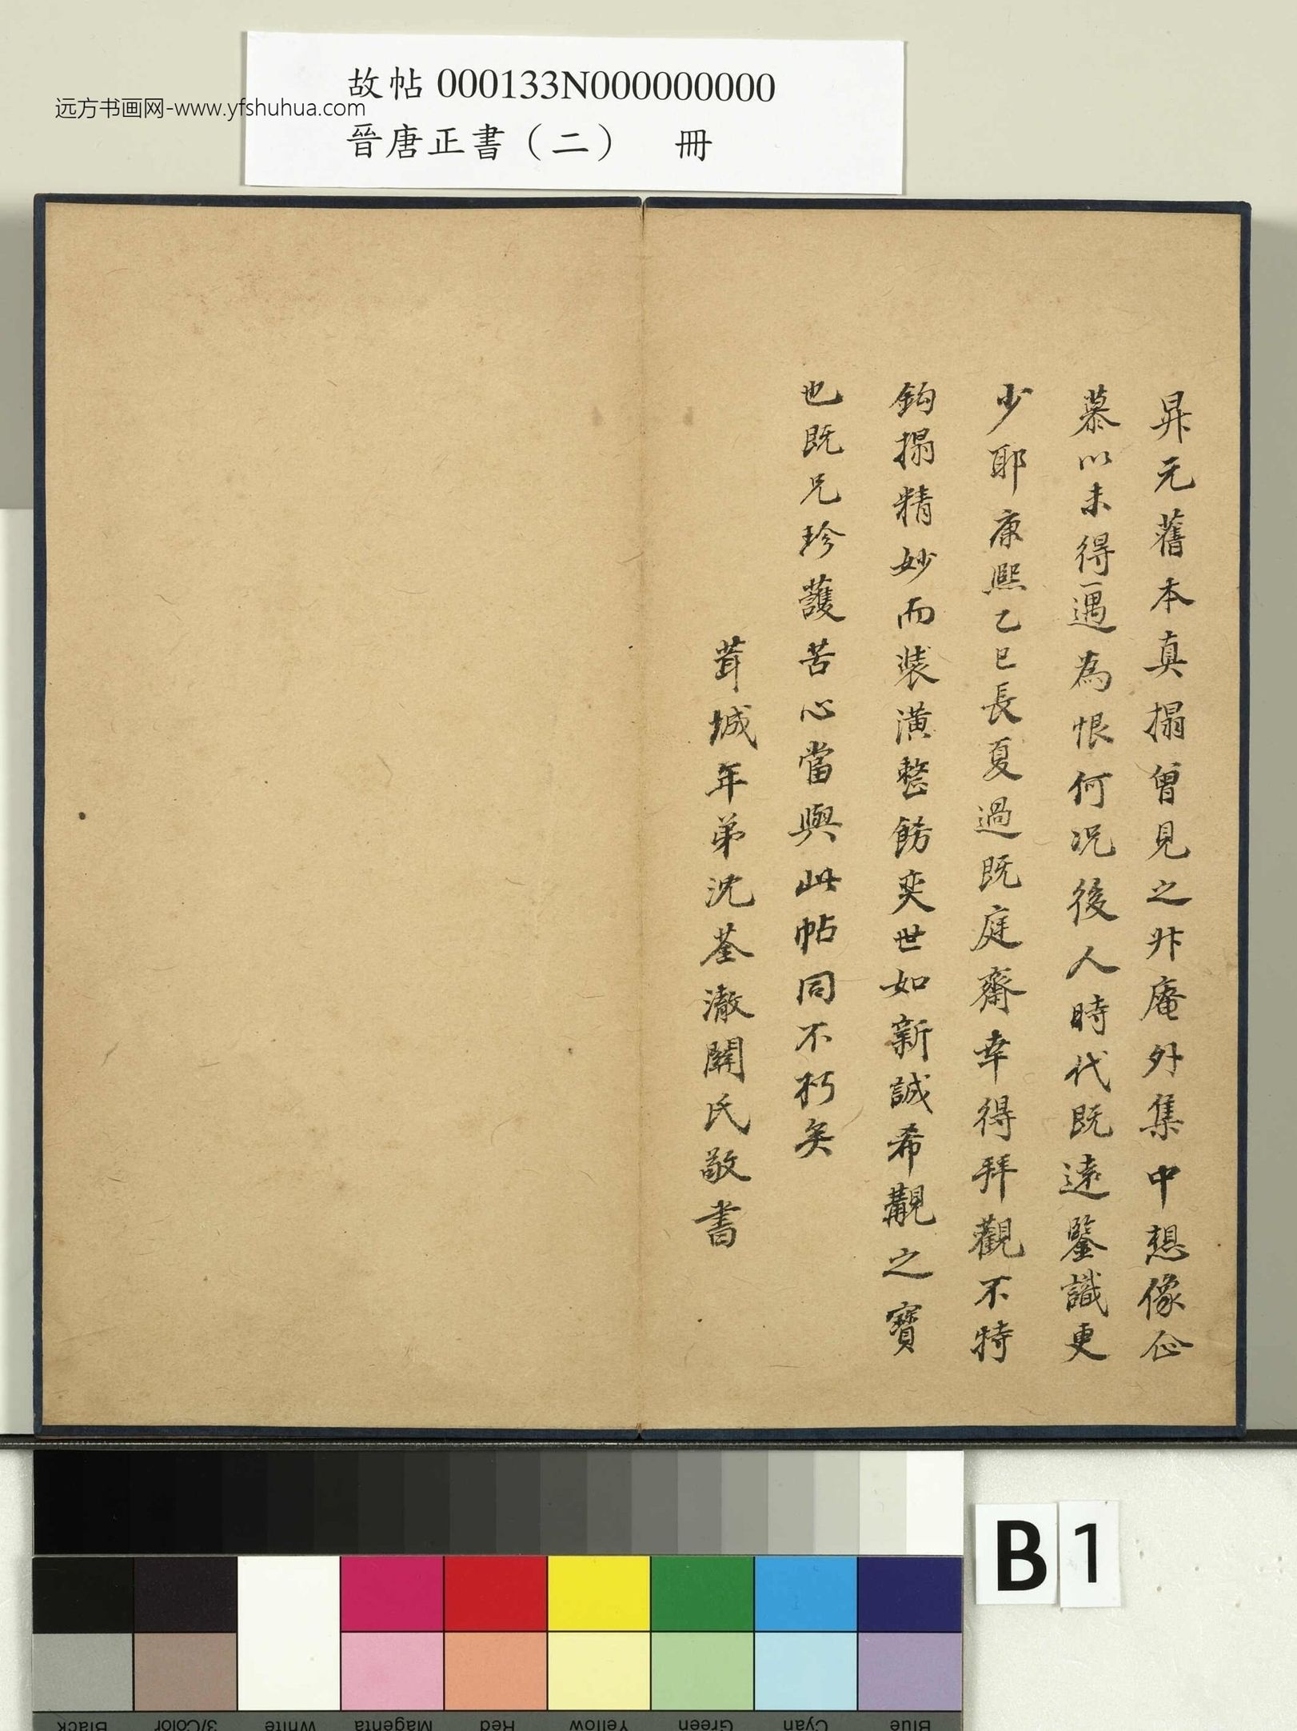 故帖 000133N000000000
远方书画网-www.yfshuhua.com
晉唐正書（二）　冊
昇元舊本真搨曾見之升庵外集中想像企
慕以未得一遇為恨何况後人時代既遠鑒識更
少耶康熙乙巳長夏過既庭齋幸得拜觀不特
鈎搨精妙而裝潢整飭奕世如新誠希覯之寶
也既兄珍護苦心當與此帖同不朽矣
茸城年弟沈荃澈閒氏敬書
B 1
Black 3/Color White Magenta Red Yellow Green Cyan Blue